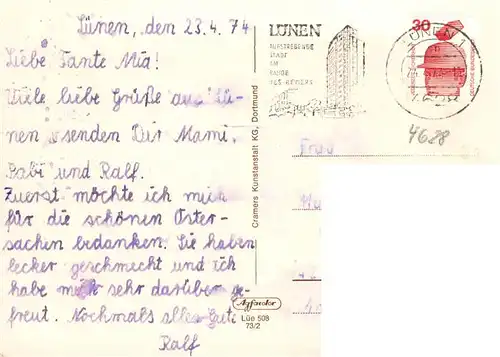 Lünen, den 23.4.74
Liebe Tante Mia!
Viele liebe Grüße aus Lü-
nen senden Dir Mami,
Babi und Ralf.
Zuerst möchte ich mich
für die schönen Oster-
sachen bedanken. Sie haben
lecker geschmeckt und ich
habe mich sehr darüber ge-
freut. Nochmals alles Gute
Ralf
Cramers Kunstanstalt KG, Dortmund
Agfacolor
Lüe 508
73/2
LÜNEN
AUFSTREBENDE
STADT
AM
RANDE
DES REVIERS
LÜNEN 1
30
DEUTSCHE BUNDESPOST
4628
Frau